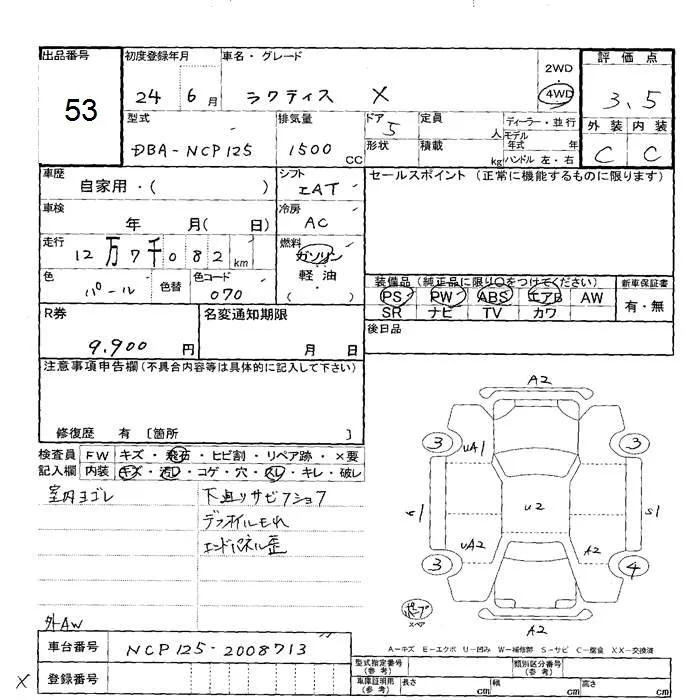 出品番号
53
初度登録年月
24 6月
車名・グレード
ラクティス X
2WD
4WD
評価点
3.5
外装 内装
C C
型式
DBA-NCP125
排気量
1500 CC
ドア 5
形状
定員 人
積載 kg
ディーラー・並行
モデル年式 年
ハンドル 左・右
車歴
自家用・( )
シフト
車検
年 月( 日)
冷房
AC
走行
12万7千082 km
燃料
ガソリン
軽油
( )
色
パール
色替
色コード
070
セールスポイント (正常に機能するものに限ります)
装備品 (純正品に限り〇をつけてください)
PS PW ABS エアB AW
SR ナビ TV カワ
新車保証書
有・無
後日品
R券
9,900 円
名変通知期限
月 日
注意事項申告欄(不具合内容等は具体的に記入して下さい)
修復歴 有 [箇所 ]
検査員記入欄
FW キズ・飛石・ヒビ割・リペア跡・×要
内装 キズ・汚レ・コゲ・穴・スレ・キレ・破レ
室内ヨゴレ
デフオイルモれ
エンドパネル歪
外AW
A2
3 3
UA1
U2
S1
UA2
A2
3 4
A2
スペア
A-キズ E-エクボ U-凹み W-補修跡 S-サビ C-腐食 XX-交換済
車台番号
NCP125-2008713
X 登録番号
型式指定番号(参考)
類別区分番号(参考)
車庫証明用(参考)
長さ cm
幅 cm
高さ cm